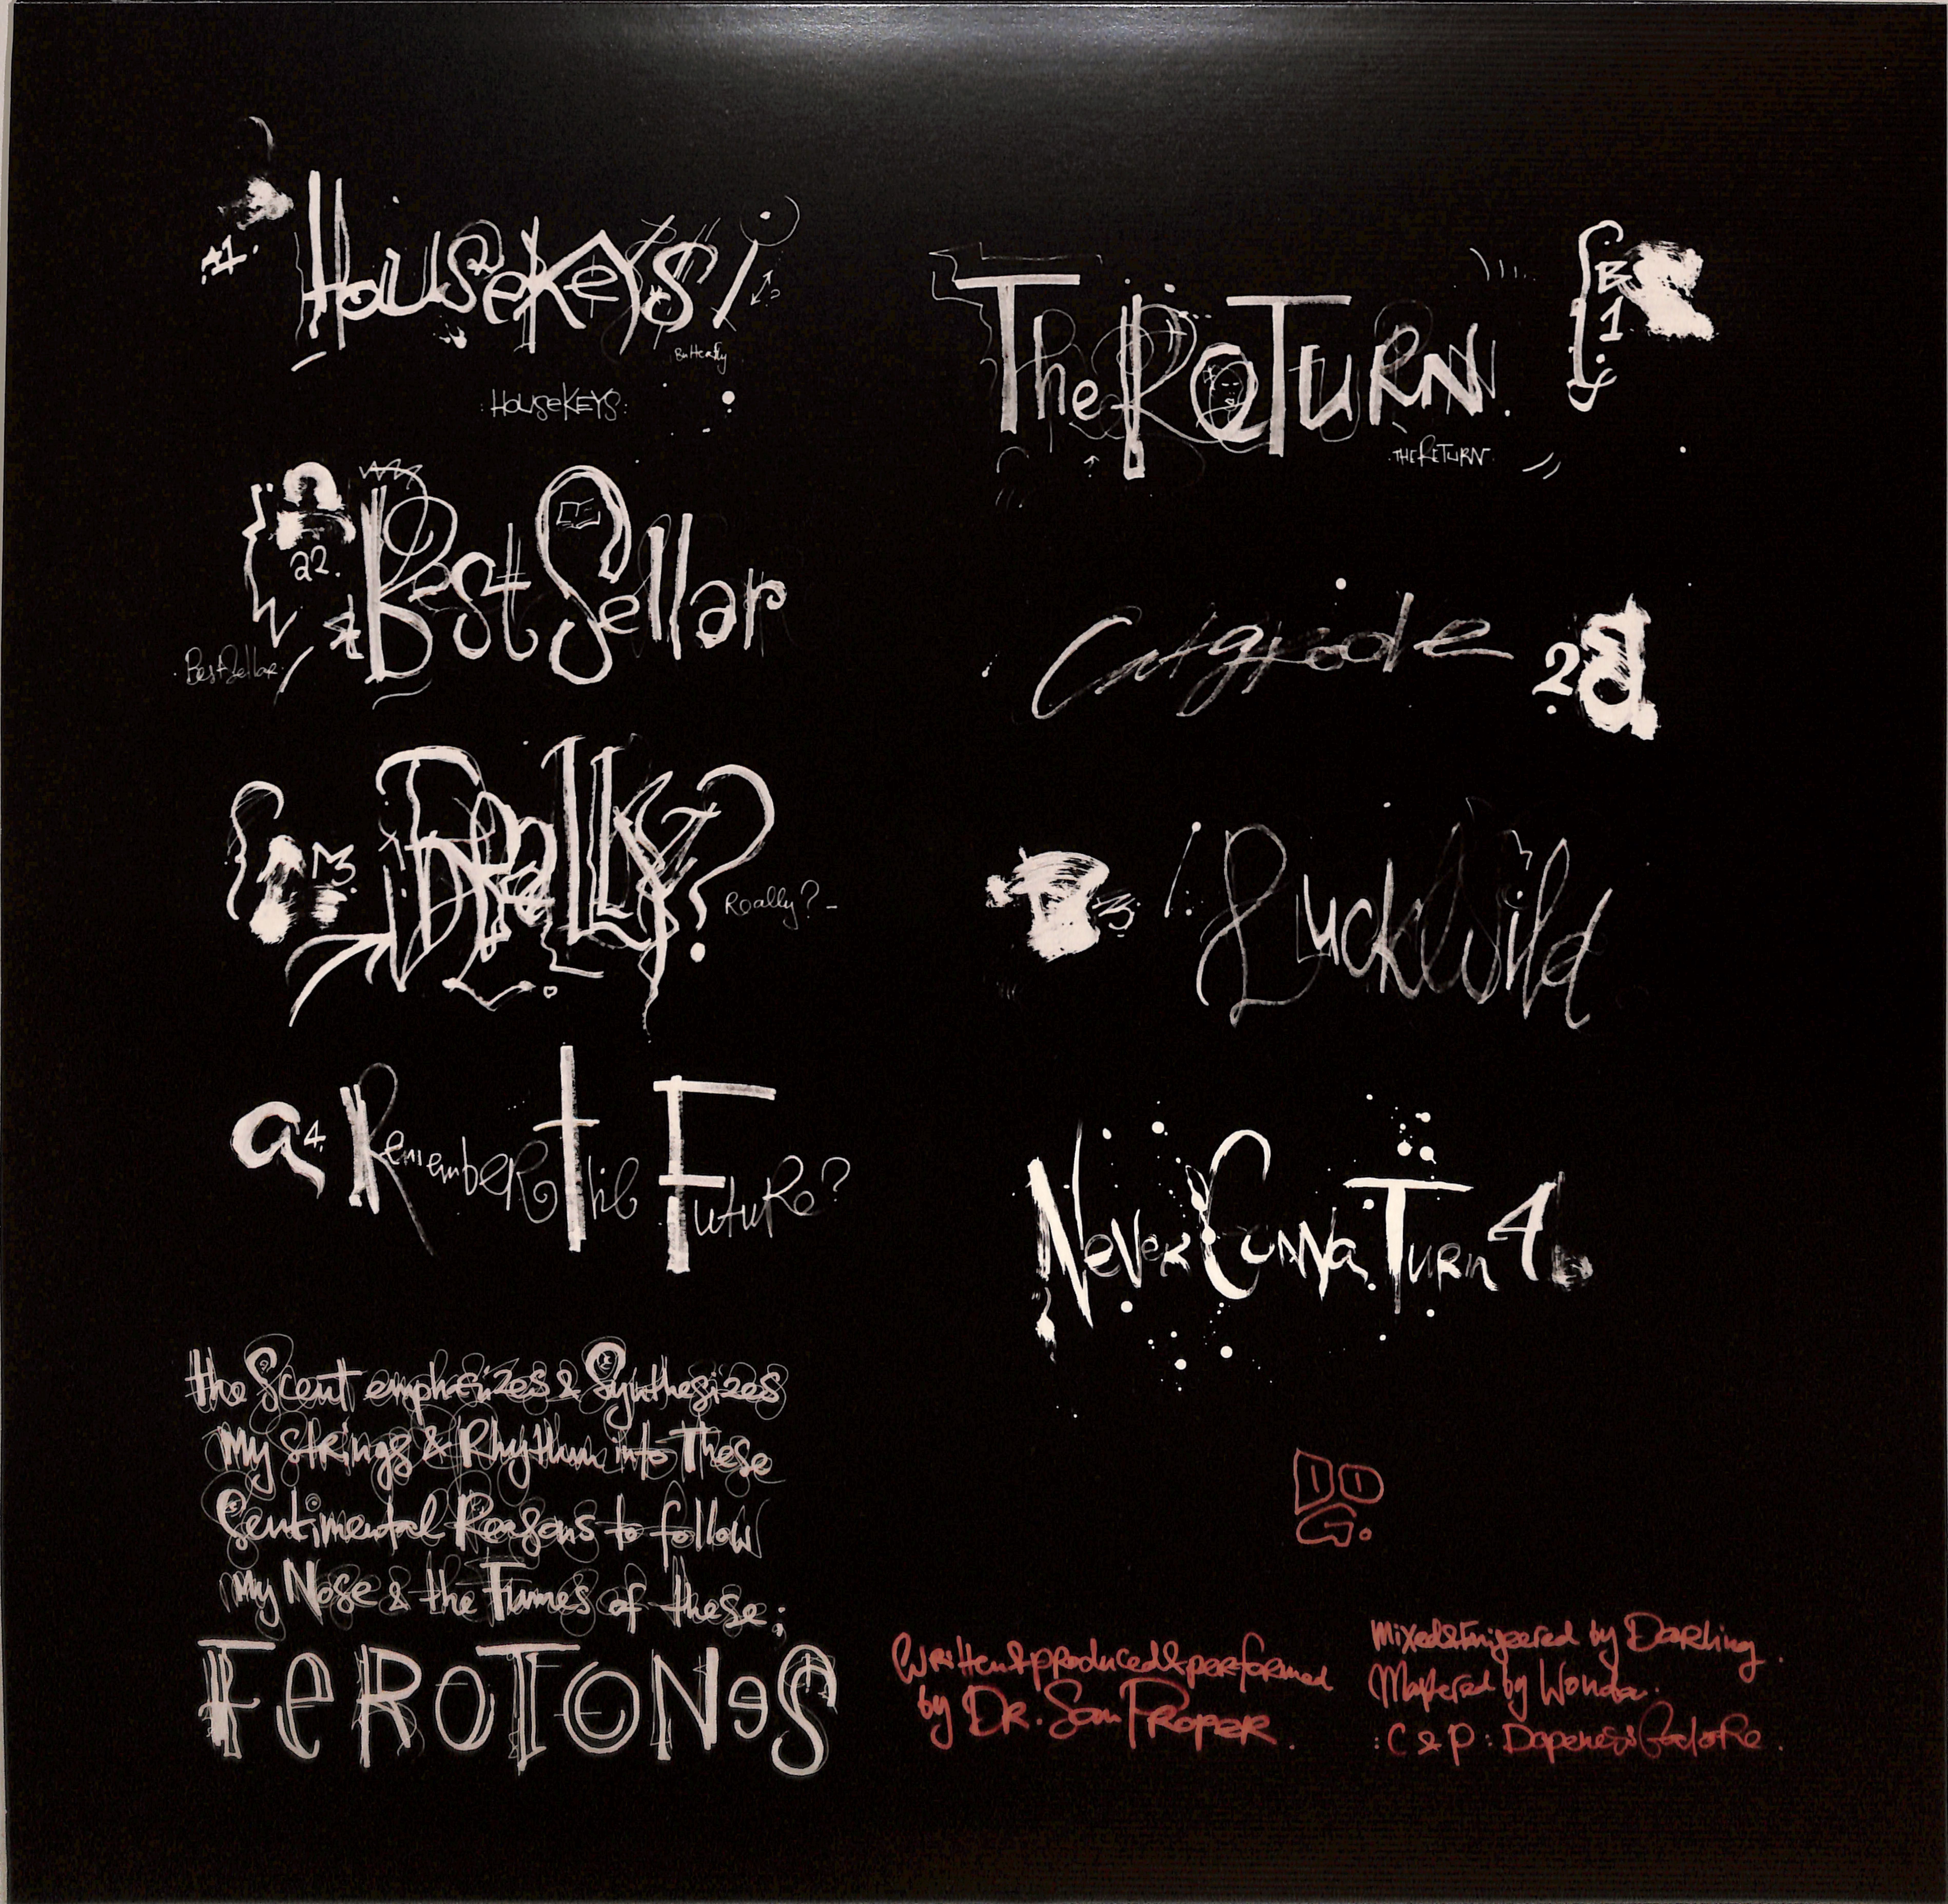 A1. HouseKeys!
Butterfly
:HouseKEYS:
a2. Best Sellar
BestSellar.
A3. Really?
Really?
a4. Remember the Future?
the Scent emphasizes & Synthesizes
my strings & Rhythm into These
Sentimental Reasons to follow
my Nose & the Flames of these;
FeROTONeS
B1 The ReTURN.
.THE ReTURN.
2B
B3 LuckWild
Never Gonna Turn 4b
DOG.
Written&produced&performed
by DR. Sam PROPER.
Mixed&Engineered by Darling.
Mastered by Wonder.
:C & P: Dopeness Galore.